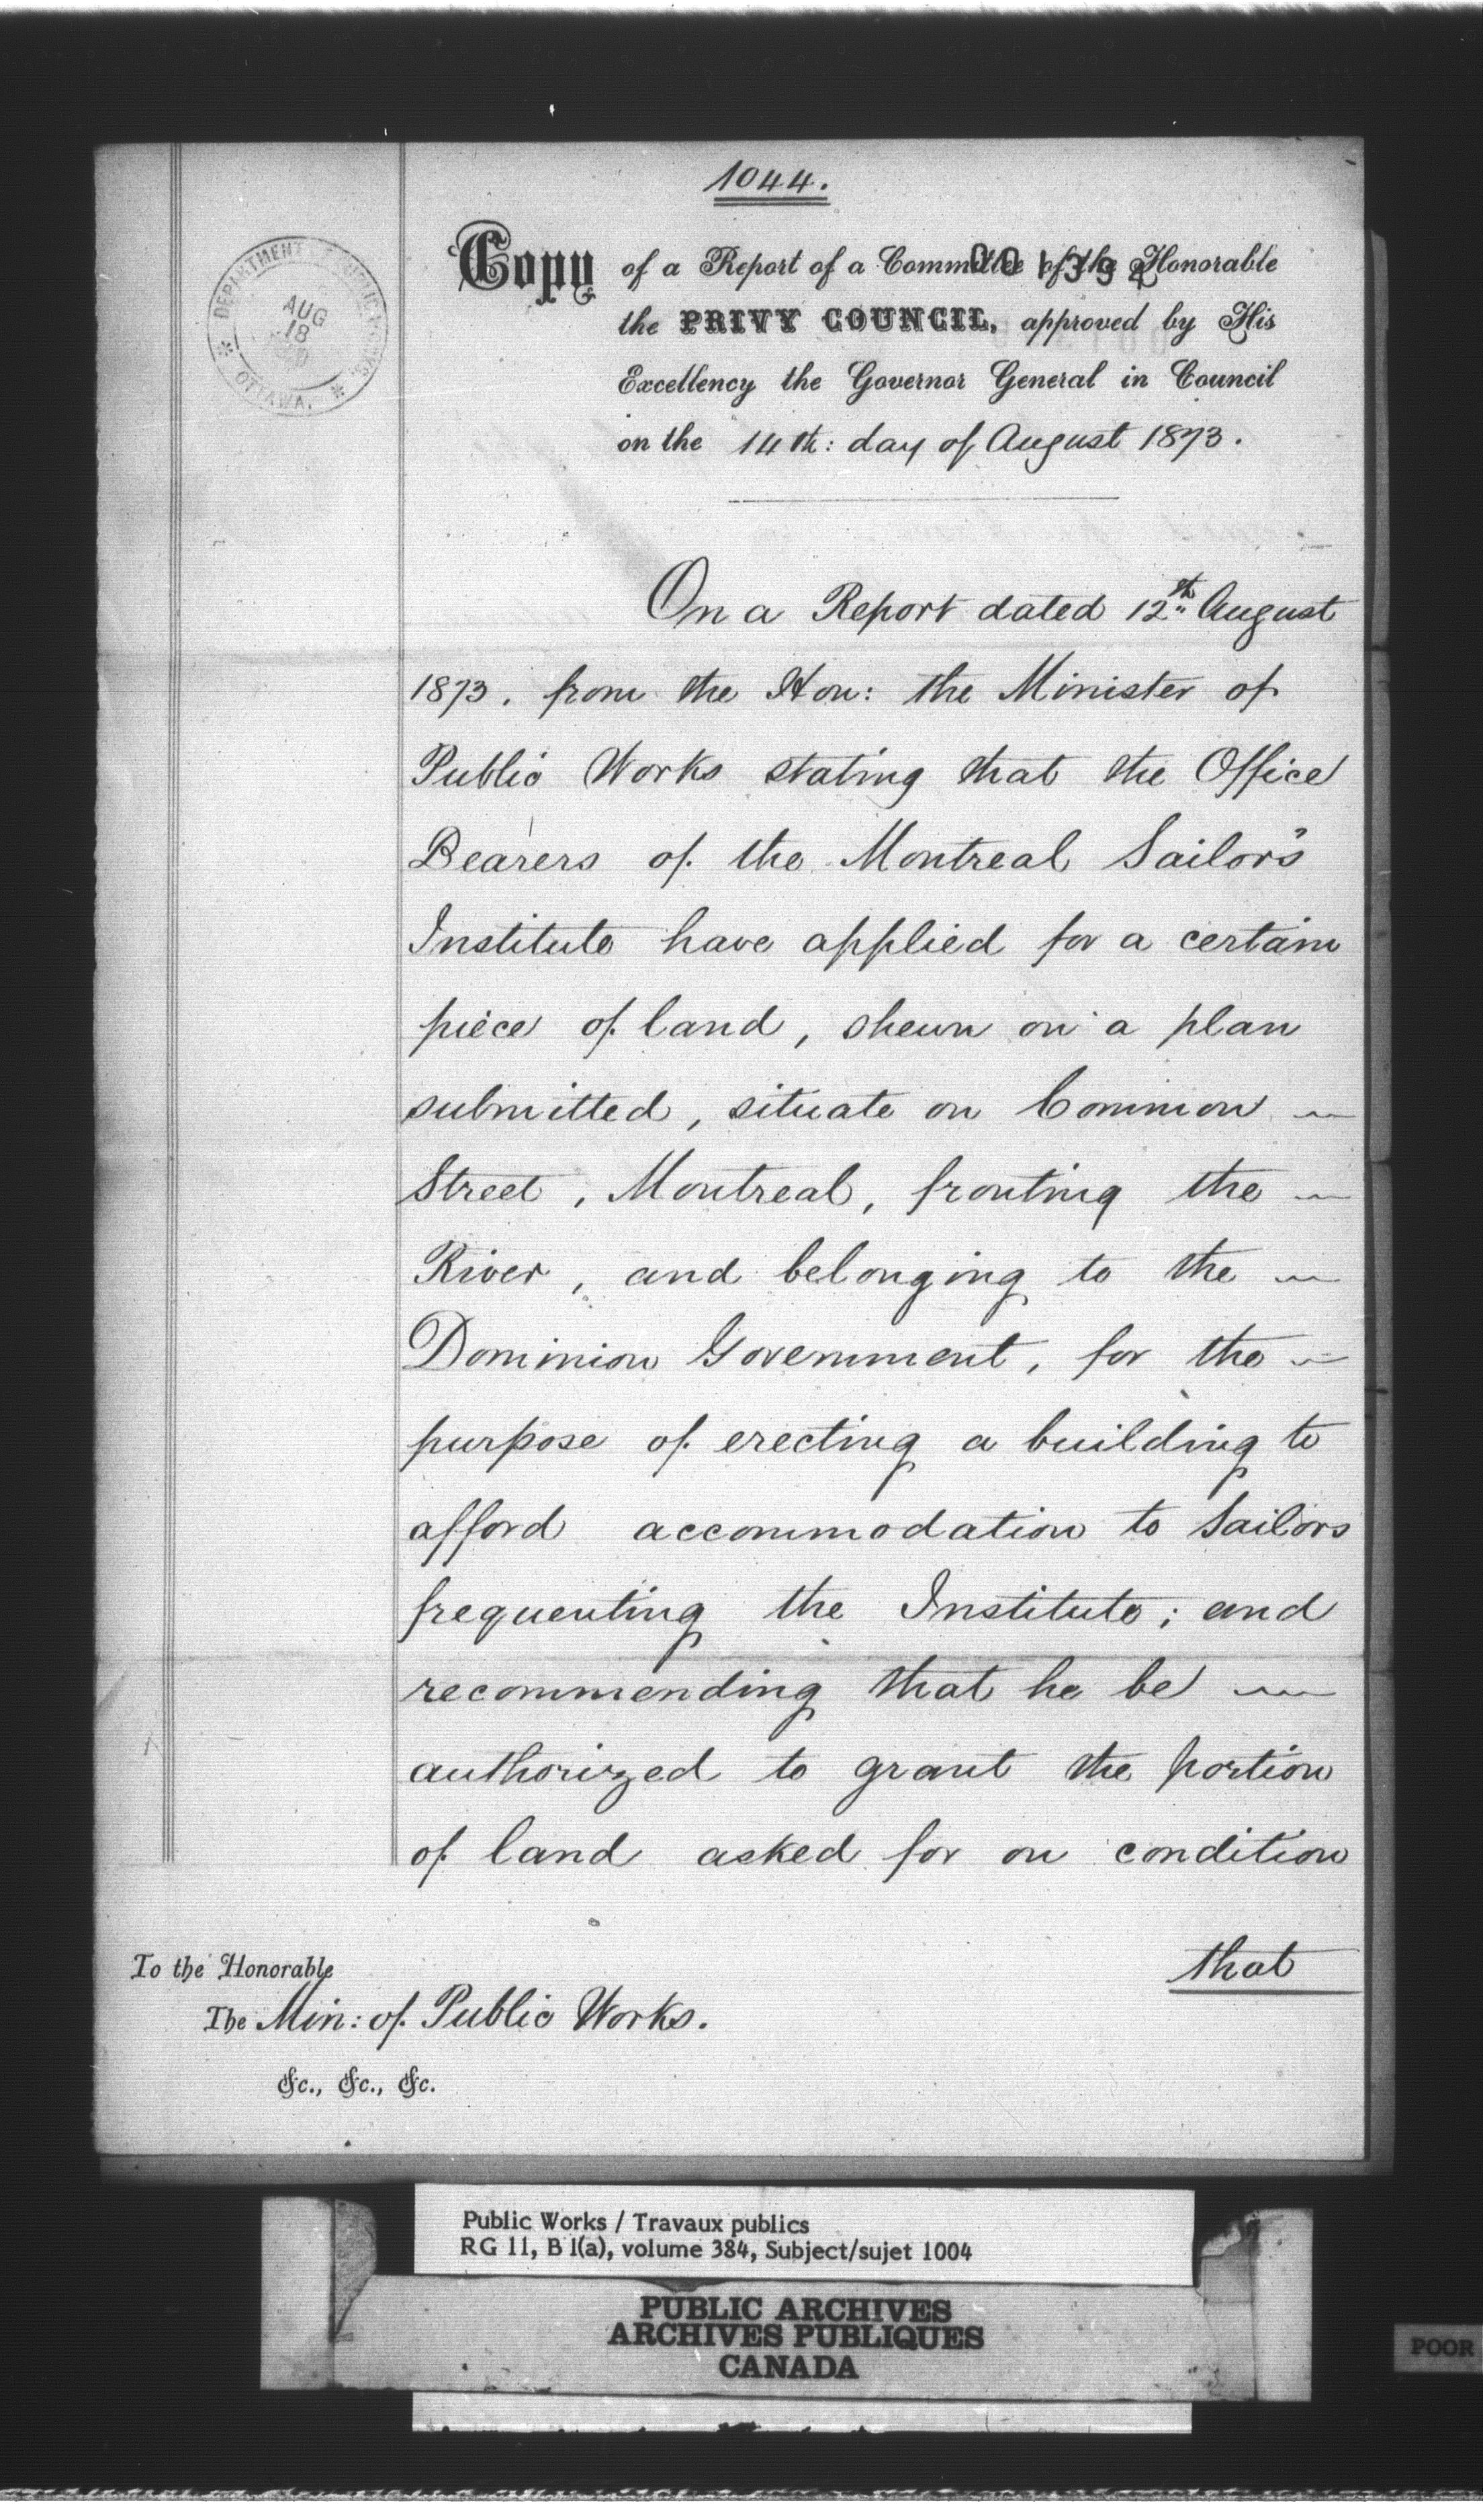 1044.
DEPARTMENT PUBLIC WORKS
AUG
18
OTTAWA.
Copy of a Report of a Committee of the Honorable
the PRIVY COUNCIL, approved by His
Excellency the Governor General in Council
on the 14th: day of August 1873.
On a Report dated 12th August
1873. from the Hon: the Minister of
Public Works stating that the Office
Bearers of the Montreal Sailor's
Institute have applied for a certain
piece of land, shewn on a plan
submitted, situate on Common
Street, Montreal, fronting the
River, and belonging to the
Dominion Government, for the
purpose of erecting a building to
afford accommodation to Sailors
frequenting the Institute; and
recommending that he be
authorized to grant the portion
of land asked for on condition
that
To the Honorable
The Min: of Public Works.
&c., &c., &c.
Public Works / Travaux publics
RG 11, B 1(a), volume 384, Subject/sujet 1004
PUBLIC ARCHIVES
ARCHIVES PUBLIQUES
CANADA
POOR